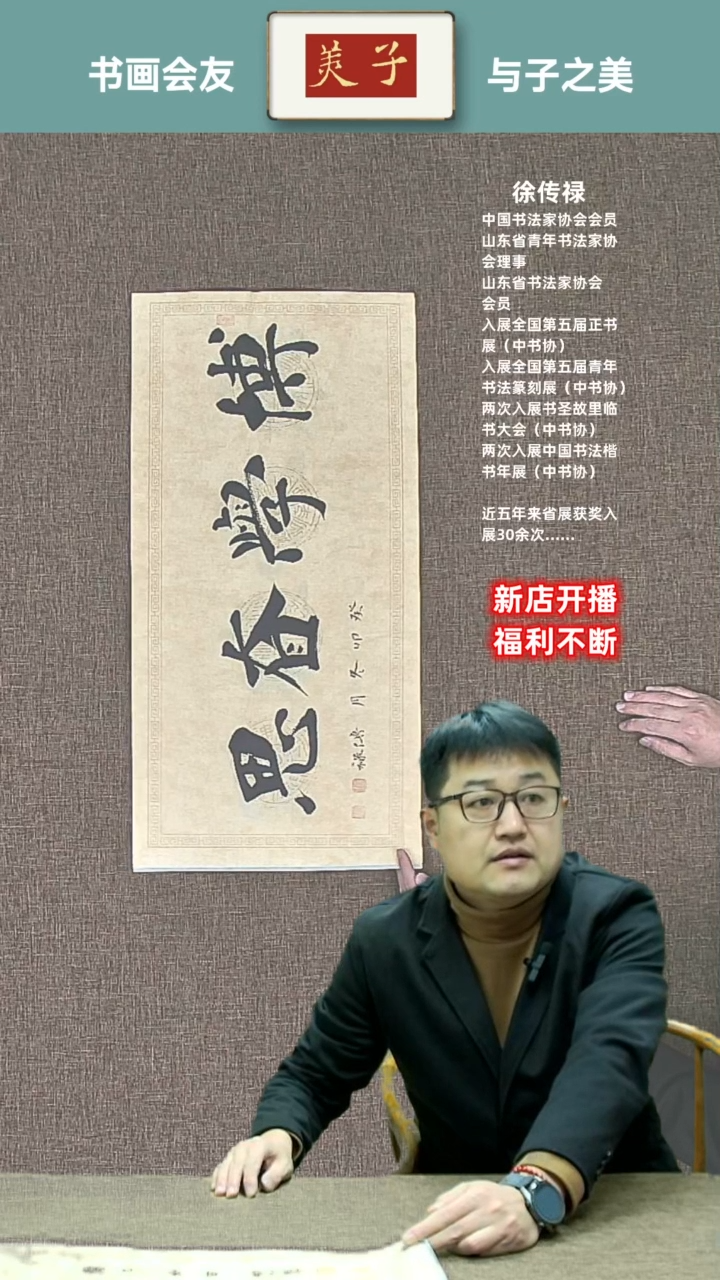 书画会友
美子
与子之美
徐传禄
中国书法家协会会员
山东省青年书法家协
会理事
山东省书法家协会
会员
入展全国第五届正书
展（中书协）
入展全国第五届青年
书法篆刻展（中书协）
两次入展书圣故里临
书大会（中书协）
两次入展中国书法楷
书年展（中书协）
近五年来省展获奖入
展30余次......
新店开播
福利不断
博學昚思
癸卯冬月